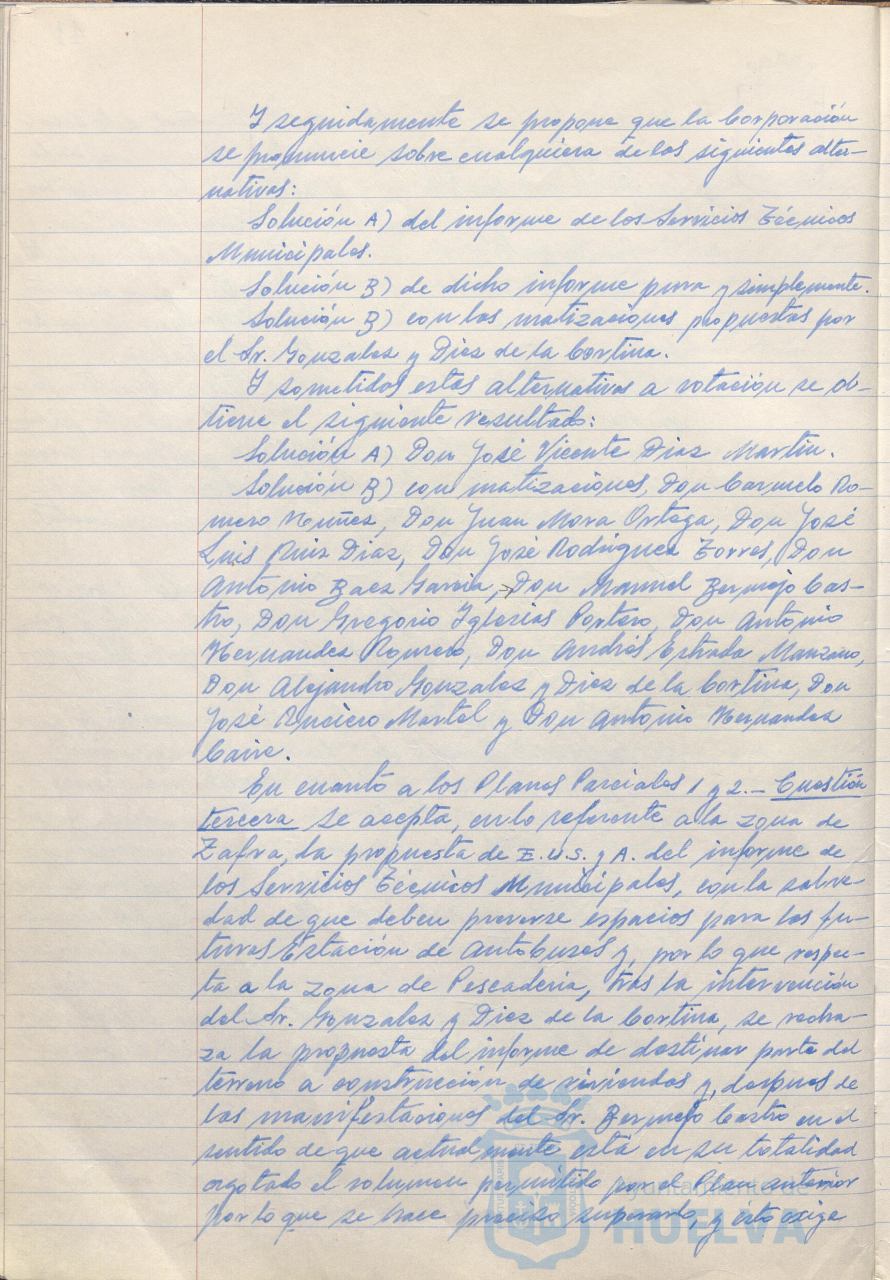 Y seguidamente se propone que la Corporación
se pronuncie sobre cualquiera de las siguientes alter-
nativas:
Solución A) del informe de los Servicios Técnicos
Municipales.
Solución B) de dicho informe pura y simplemente.
Solución B) con las matizaciones propuestas por
el Sr. Gonzalez y Diez de la Cortina.
Y sometidas estas alternativas a votación se ob-
tiene el siguiente resultado:
Solución A) Don José Vicente Diaz Martin.
Solución B) con matizaciones, Don Carmelo Ro-
mero Nuñez, Don Juan Mora Ortega, Don José
Luis Ruiz Diaz, Don José Rodriguez Torres, Don
Antonio Baez Garcia, Don Manuel Bermejo Cas-
tro, Don Gregorio Iglesias Portero, Don Antonio
Hernandez Romero, Don Andrés Estrada Manzano,
Don Alejandro Gonzalez y Diez de la Cortina, Don
José Martel y Don Antonio Hernandez
En cuanto a los Planes Parciales 1 y 2.- Cuestión
tercera se acepta, en lo referente a la zona de
Zafra, la propuesta de E.U.S. y A. del informe de
los Servicios Técnicos Municipales, con la salve-
dad de que deben preverse espacios para las fu-
turas Estación de Autobuses y, por lo que respec-
ta a la zona de Pescadería, tras la intervención
del Sr. Gonzalez y Diez de la Cortina, se recha-
za la propuesta del informe de destinar parte del
terreno a construcción de viviendas y, despues de
las manifestaciones del Sr. Bermejo Castro en el
sentido de que actualmente está en su totalidad
agotado el volumen permitido por el Plan anterior
por lo que se hace preciso superarlo, y ésto exige
Ayuntamiento de
HUELVA